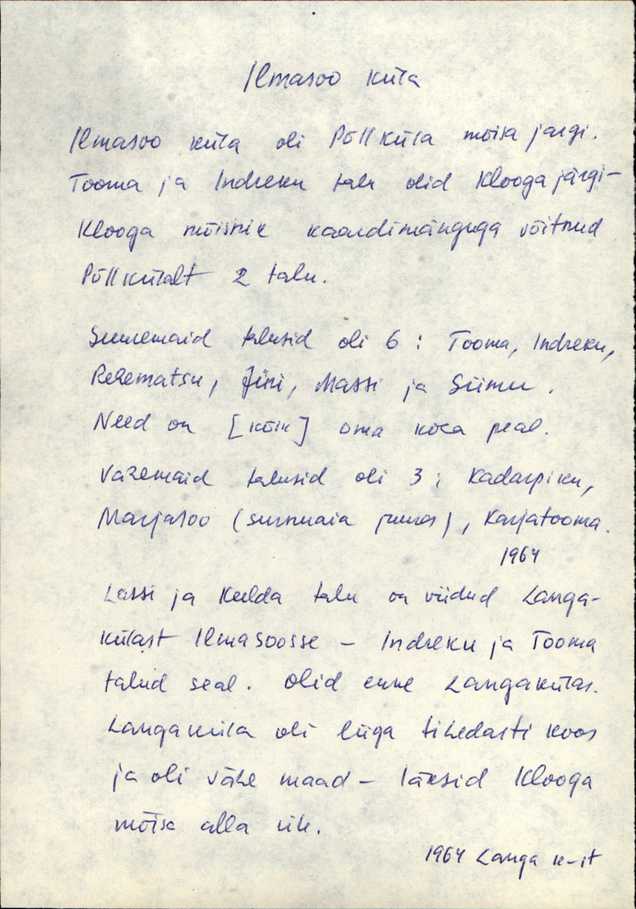 Ilmasoo küla
Ilmasoo küla oli Põllküla mõisa järgi.
Tooma ja Indreku talu olid Klooga järgi –
Klooga mõisnik kaardimänguga võitnud
Põllkülalt 2 talu.
Suuremaid talusid oli 6: Tooma, Indreku,
Rehematsu, Jüri, Massi ja Siimu.
Need on [kõik] oma koha peal.
Vähemaid talusid oli 3: Kadarpiku,
Marjasoo (surnuaia juures), Karjatooma.
1964
Lassi ja Kulda talu on viidud Langa-
külast Ilmasoosse – Indreku ja Tooma
talud seal. Olid enne Langakülas.
Langaküla oli liiga tihedasti koos
ja oli vähe maad – läksid Klooga
mõisa alla üle.
1964 Langa k-lt